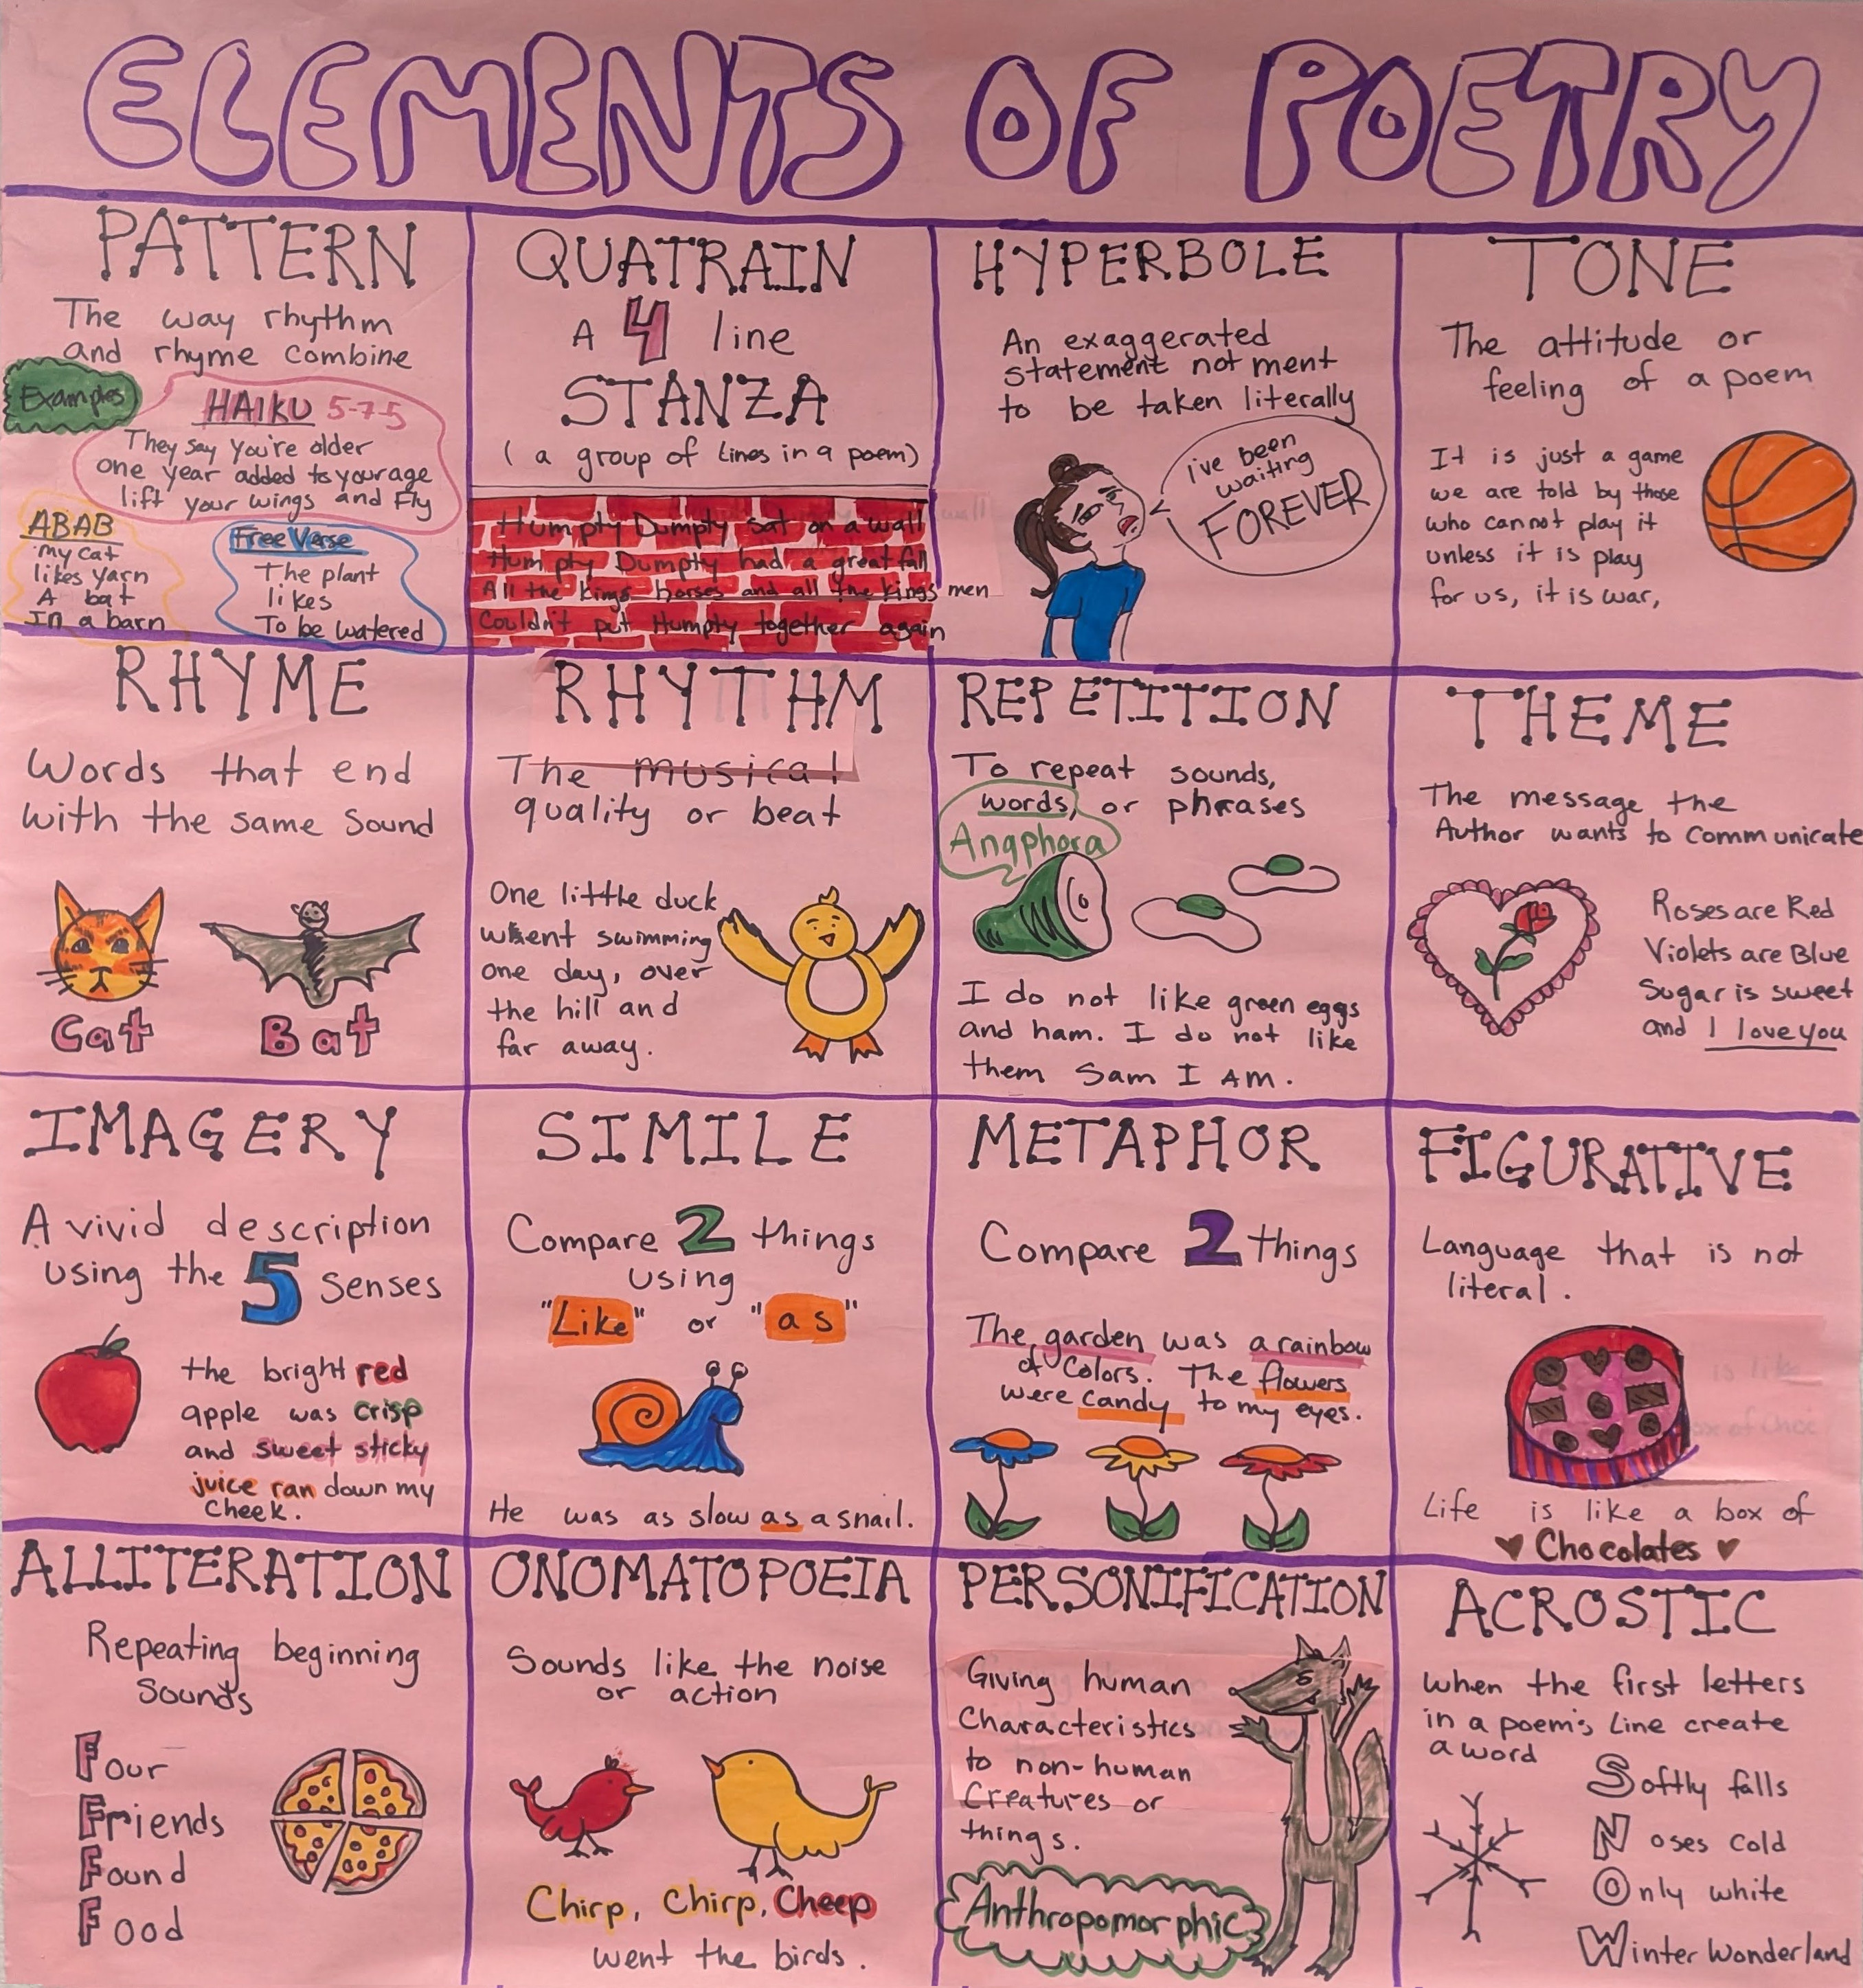 ELEMENTS OF POETRY
PATTERN
The way rhythm
and rhyme combine
Examples
HAIKU 5-7-5
They say you're older
one year added to your age
lift your wings and Fly
ABAB
my cat
likes yarn
A bat
In a barn
Free Verse
The plant
likes
To be watered
QUATRAIN
A 4 line
STANZA
(a group of lines in a poem)
Humpty Dumpty sat on a wall
Humpty Dumpty had a great fall
All the kings horses and all the kings men
Couldn't put Humpty together again
HYPERBOLE
An exaggerated
statement not ment
to be taken literally
I've been
waiting
FOREVER
TONE
The attitude or
feeling of a poem
It is just a game
we are told by those
who cannot play it
unless it is play
for us, it is war,
RHYME
Words that end
with the same Sound
Cat Bat
RHYTHM
The musical
quality or beat
One little duck
went swimming
one day, over
the hill and
far away.
REPETITION
To repeat sounds,
words, or phrases
Anaphora
I do not like green eggs
and ham. I do not like
them Sam I AM.
THEME
The message the
Author wants to Communicate
Roses are Red
Violets are Blue
Sugar is sweet
and I love you
IMAGERY
A vivid description
using the 5 senses
the bright red
apple was crisp
and sweet sticky
juice ran down my
cheek.
SIMILE
Compare 2 things
using
"Like" or "as"
He was as slow as a snail.
METAPHOR
Compare 2 things
The garden was a rainbow
of Colors. The flowers
were candy to my eyes.
FIGURATIVE
Language that is not
literal.
Life is like a box of
Chocolates
ALLITERATION
Repeating beginning
Sounds
Four
Friends
Found
Food
ONOMATOPOEIA
Sounds like the noise
or action
Chirp, Chirp, Cheep
went the birds.
PERSONIFICATION
Giving human
Characteristics
to non-human
Creatures or
things.
Anthropomorphic
ACROSTIC
when the first letters
in a poem's Line create
a word
Softly falls
Noses cold
Only white
Winter Wonderland